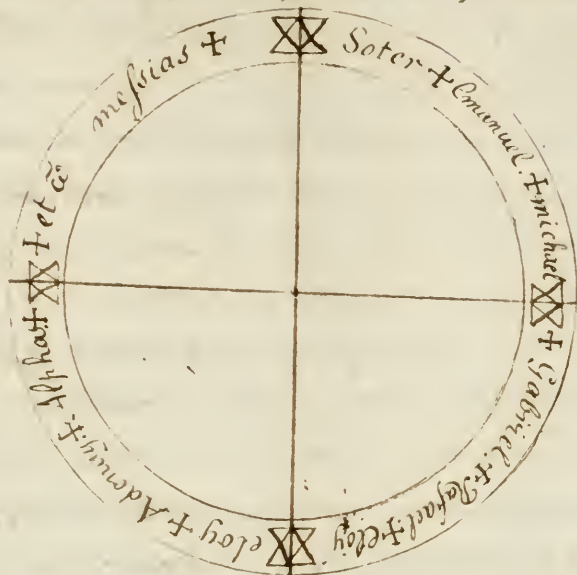 Soter + Emanuel. + michael + Gabriel. + Rafael. + eloÿ eloy + Adonay +. Alpha + + et ω̃ messias +